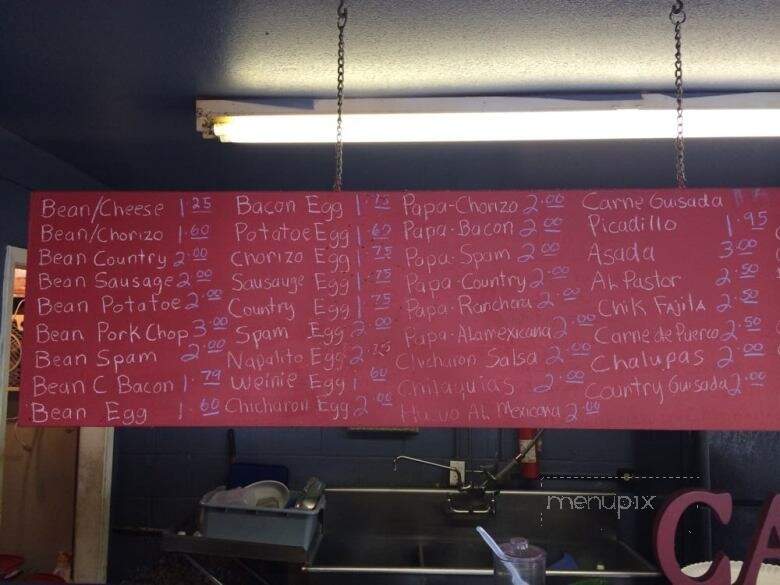 Bean/Cheese 1.25
Bean/Chorizo 1.60
Bean Country 2.00
Bean Sausage 2.00
Bean Potatoe 2.00
Bean Pork Chop 3.00
Bean Spam 2.00
Bean C Bacon 1.79
Bean Egg 1.60
Bacon Egg 1.75
Potatoe Egg 1.60
Chorizo Egg 1.75
Sausauge Egg 1.75
Country Egg 1.75
Spam Egg 2.00
Napalito Egg 2.25
Weinie Egg 1.60
Chicharon Egg 2.00
Papa-Chorizo 2.00
Papa-Bacon 2.00
Papa-Spam 2.00
Papa-Country 2.00
Papa-Ranchera 2.00
Papa-Alamexicana 2.00
Chicharon Salsa 2.00
Chilaquias 2.00
Huevo AL Mexicana 2.00
Carne Guisada
Picadillo 1.95
Asada 3.00
AL Pastor 2.50
Chik FAjita 2.50
Carne de Puerco 2.50
Chalupas 2.00
Country Guisada 2.00
menupix
CA